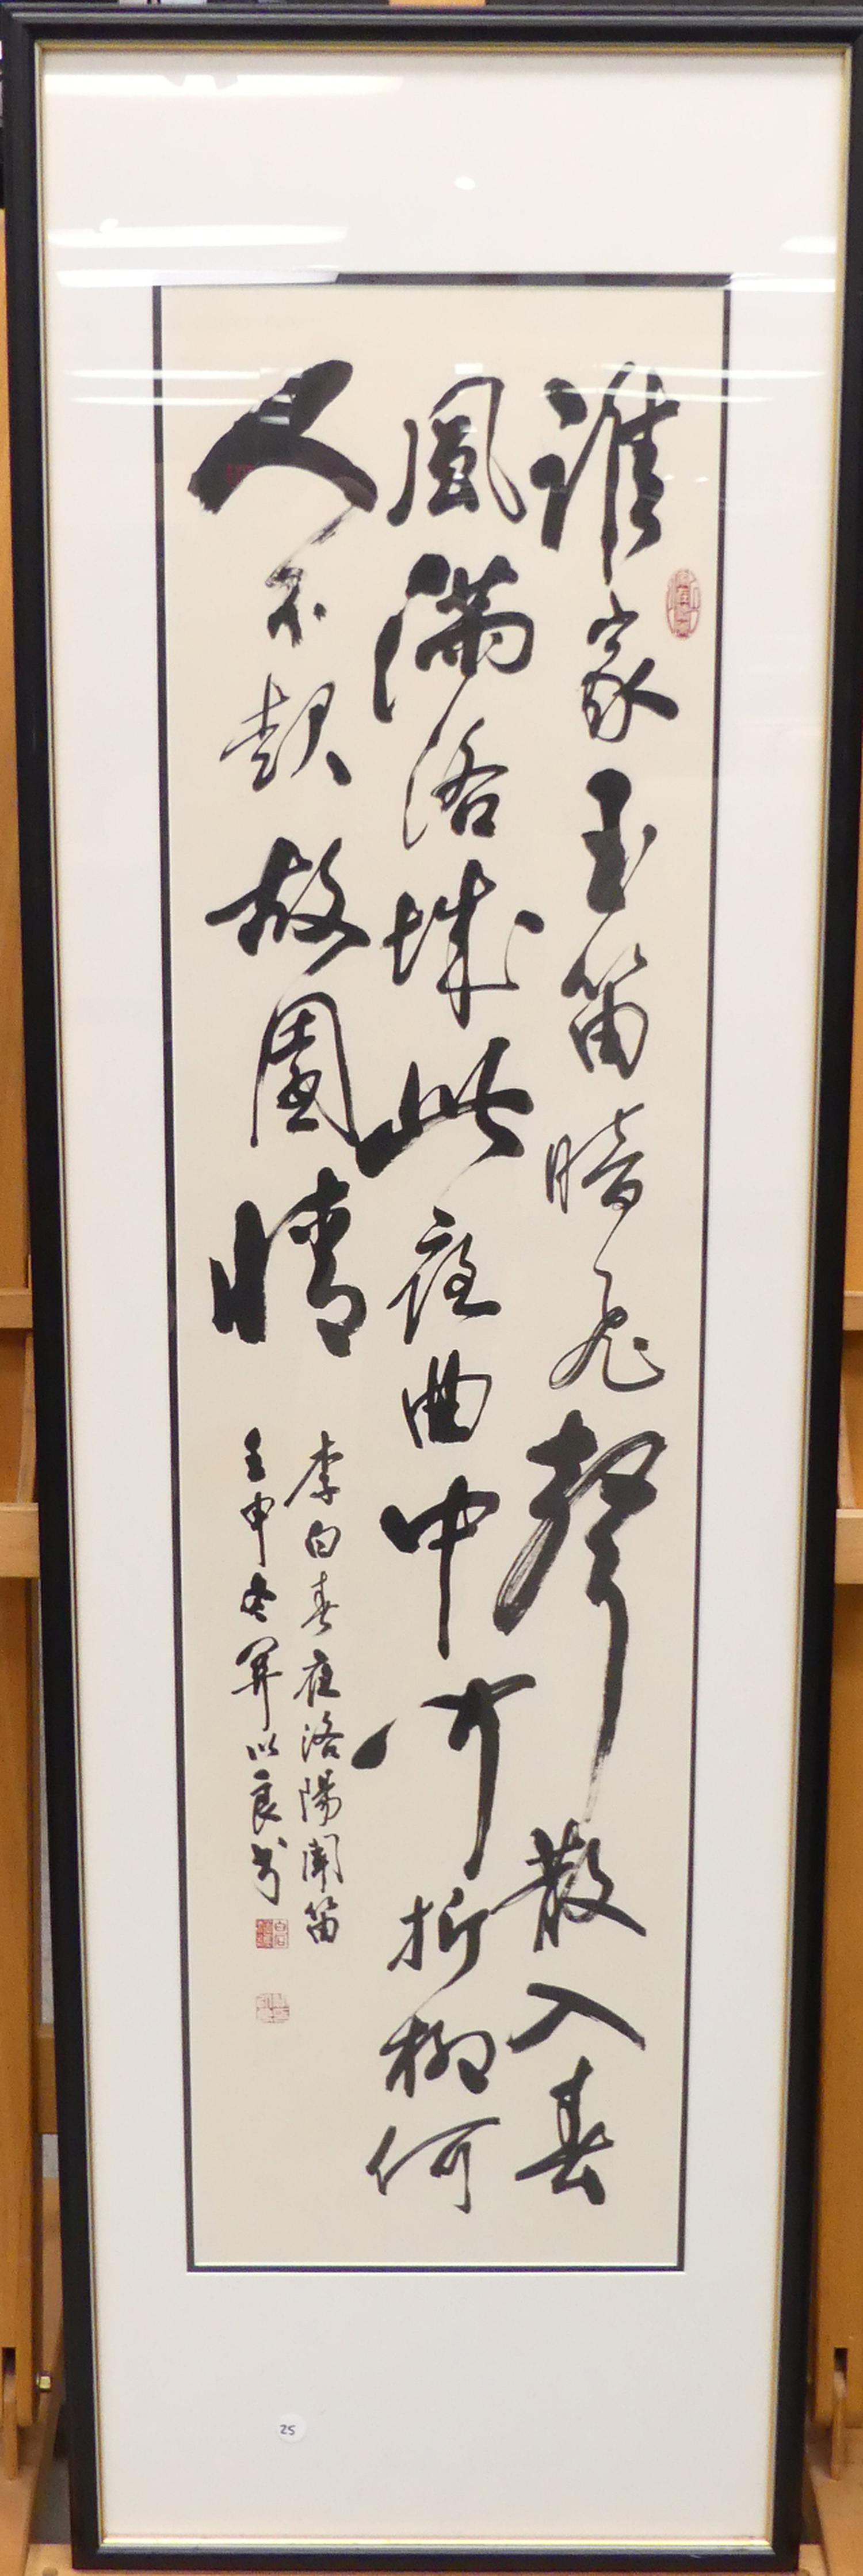 誰家玉笛暗飛聲散入春
風滿洛城此夜曲中聞折柳何
人不起故園情
李白春夜洛陽聞笛
壬申冬 以良书
25